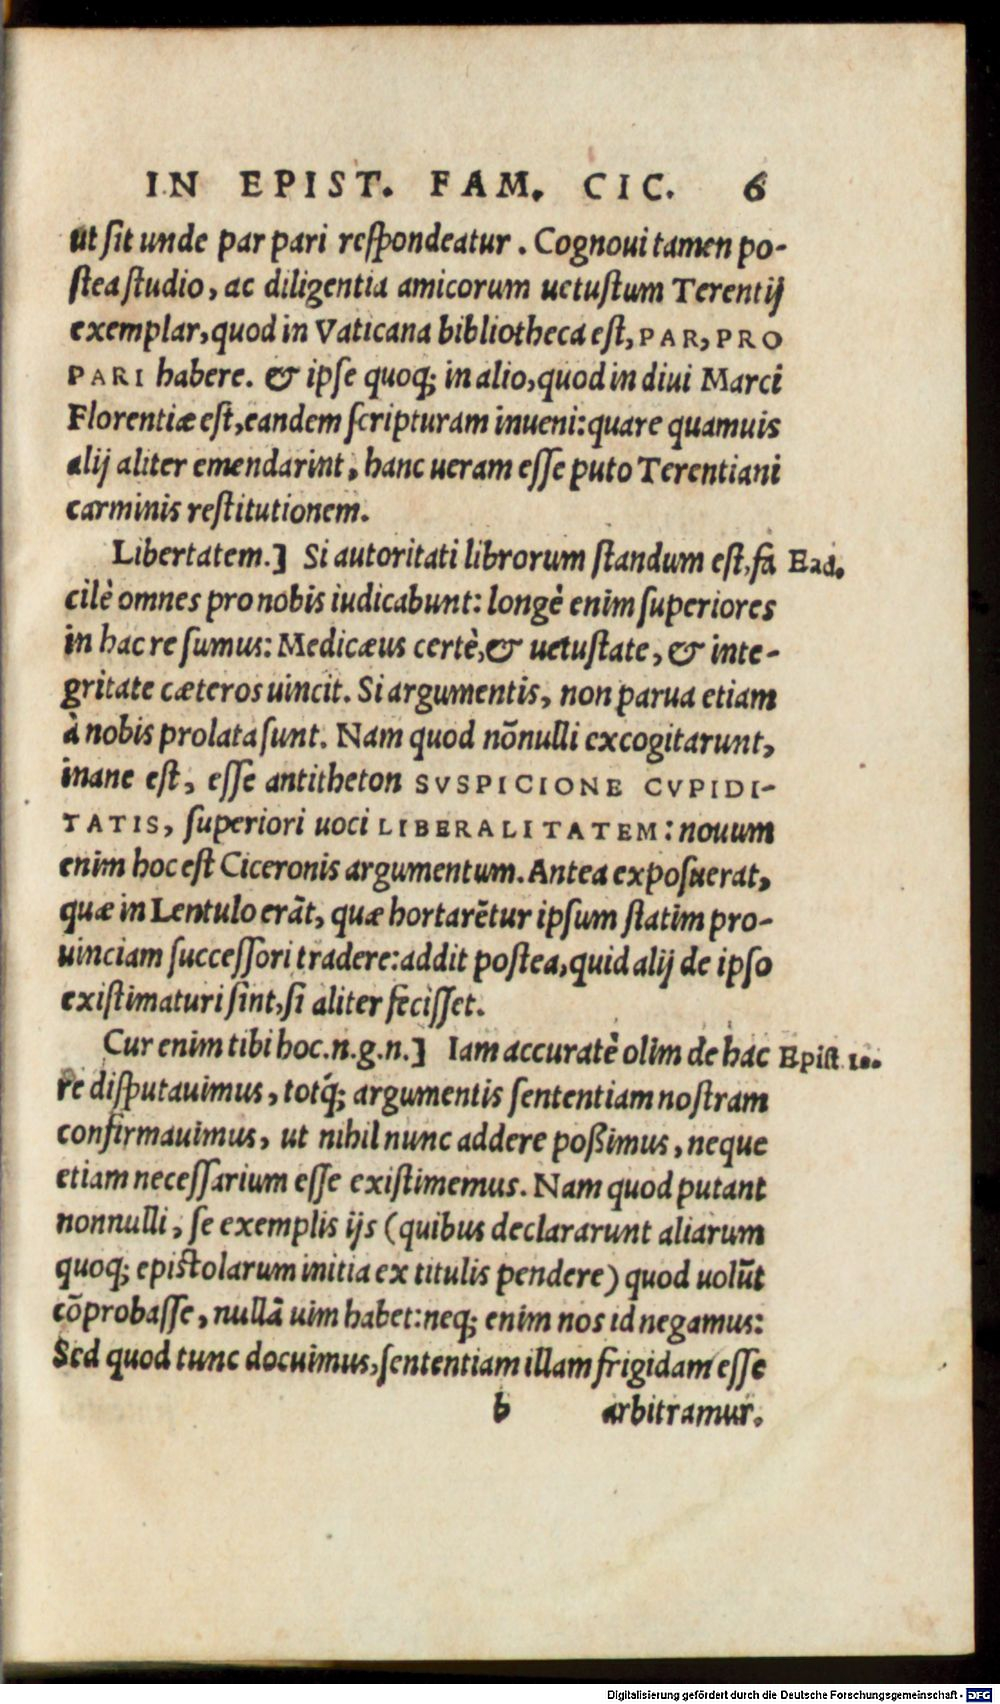 IN EPIST. FAM. CIC. 6
ut sit unde par pari respondeatur. Cognoui tamen po-
stea studio, ac diligentia amicorum uetustum Terentij
exemplar, quod in Vaticana bibliotheca est, PAR, PRO
PARI habere. & ipse quoq; in alio, quod in diui Marci
Florentiæ est, eandem scripturam inueni: quare quamuis
alij aliter emendarint, hanc ueram esse puto Terentiani
carminis restitutionem.
Libertatem.] Si autoritati librorum standum est, fa Ead.
cilè omnes pro nobis iudicabunt: longè enim superiores
in hac re sumus: Medicæus certè, & uetustate, & inte-
gritate cæteros uincit. Si argumentis, non parua etiam
à nobis prolata sunt. Nam quod nõnulli excogitarunt,
inane est, esse antitheton SVSPICIONE CVPIDI-
TATIS, superiori uoci LIBERALITATEM: nouum
enim hoc est Ciceronis argumentum. Antea exposuerat,
quæ in Lentulo erãt, quæ hortarẽtur ipsum statim pro-
uinciam successori tradere: addit postea, quid alij de ipso
existimaturi sint, si aliter fecisset.
Cur enim tibi hoc.n.g.n.] Iam accuratè olim de hac Epist. 10.
re disputauimus, totq́; argumentis sententiam nostram
confirmauimus, ut nihil nunc addere poßimus, neque
etiam necessarium esse existimemus. Nam quod putant
nonnulli, se exemplis ijs (quibus declararunt aliarum
quoq; epistolarum initia ex titulis pendere) quod uolũt
cõprobasse, nullã uim habet: neq; enim nos id negamus:
Sed quod tunc docuimus, sententiam illam frigidam esse
b arbitramur.
Digitalisierung gefördert durch die Deutsche Forschungsgemeinschaft - DFG